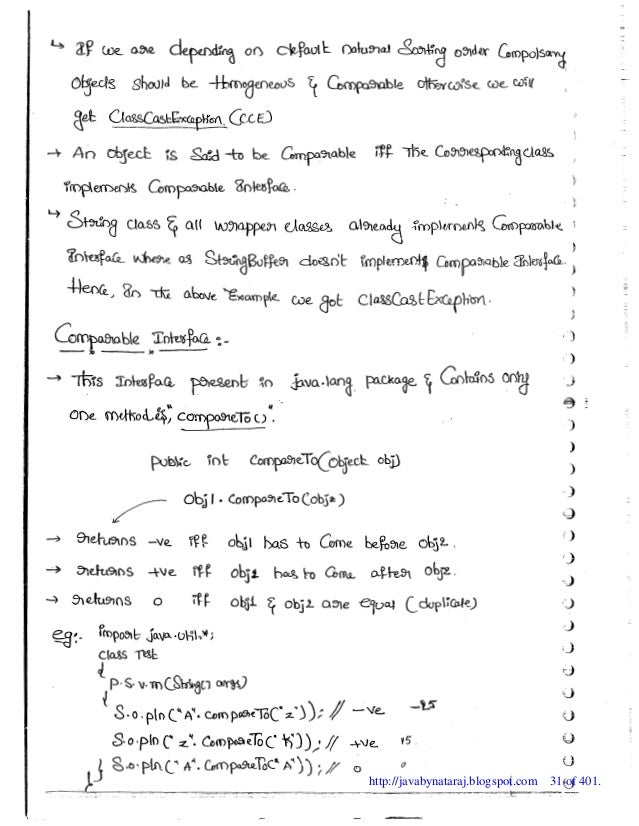 ↳ If we are depending on default natural Sorting order Compulsary
Objects should be Homogeneous & Comparable otherwise we will
get ClassCastException (CCE)
→ An object is Said to be Comparable iff The Correspondingclass
implements Comparable Interface.
↳ String class & all wrapper classes already implements Comparable
Interface where as StringBuffer doesn't implements Comparable Interface.
Hence, In the above Example we got ClassCastException.
Comparable Interface :-
→ This Interface present in java.lang package & Contains only
one method is, "compareTo()".
public int compareTo(Object obj)
Obj1.compareTo(obj2)
→ returns -ve iff obj1 has to Come before obj2.
→ returns +ve iff obj1 has to Come after obj2.
→ returns 0 iff obj1 & obj2 are equal (duplicate)
eg:- import java.util.*;
class Test
{
p.s.v.m(String[] args)
{
S.o.pln("A".compareTo("z")); // -ve -25
S.o.pln("z".compareTo("K")); // +ve 15
S.o.pln("A".compareTo("A")); // 0 0
}}
http://javabynataraj.blogspot.com 31 of 401.